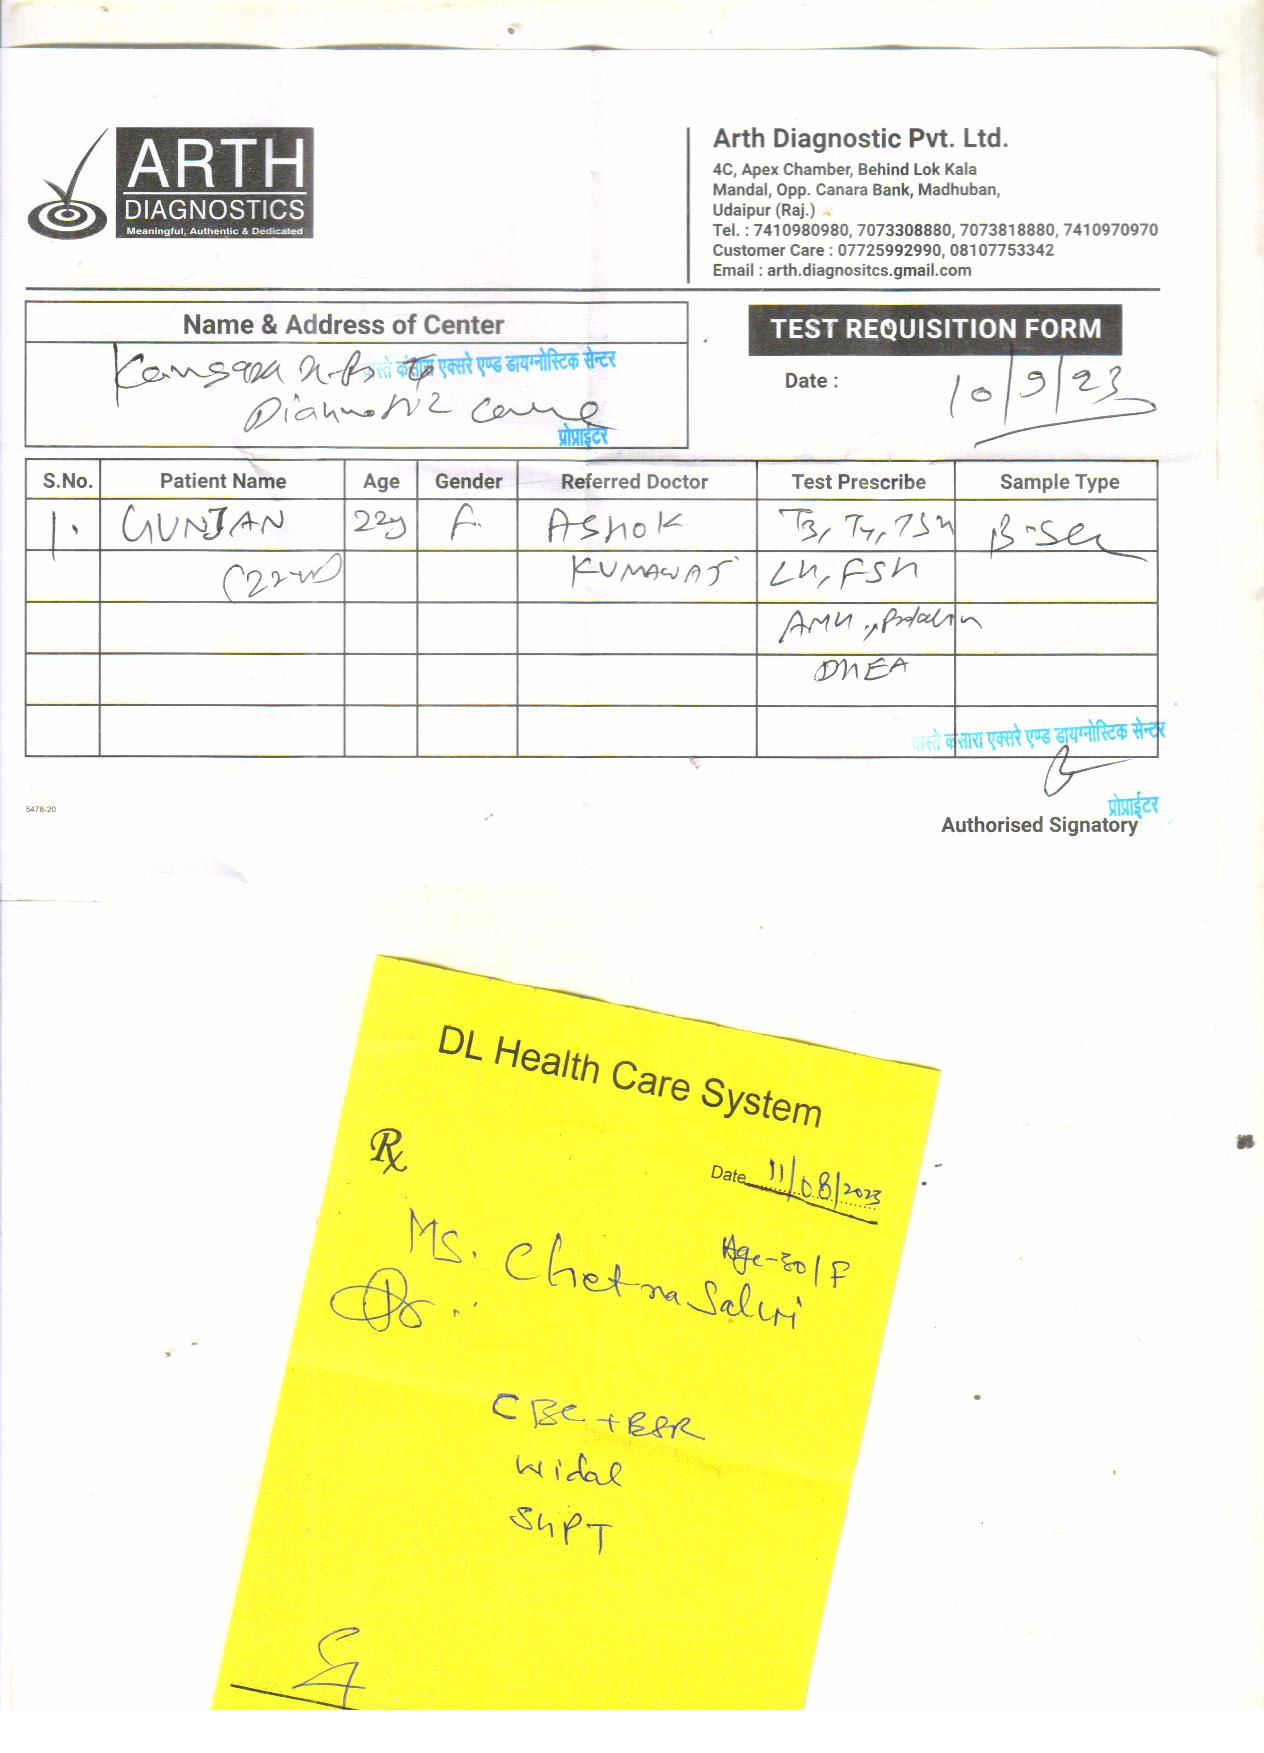 ARTH
DIAGNOSTICS
Meaningful, Authentic & Dedicated
Arth Diagnostic Pvt. Ltd.
4C, Apex Chamber, Behind Lok Kala
Mandal, Opp. Canara Bank, Madhuban,
Udaipur (Raj.)
Tel. : 7410980980, 7073308880, 7073818880, 7410970970
Customer Care : 07725992990, 08107753342
Email : arth.diagnositcs.gmail.com
Name & Address of Center
TEST REQUISITION FORM
वास्ते कंसारा एक्सरे एण्ड डायग्नोस्टिक सेन्टर
Diagnostic
प्रोप्राईटर
Date : 10/9/23
S.No. Patient Name Age Gender Referred Doctor Test Prescribe Sample Type
1. GUNJAN 22y F. ASHOK T3, T4, TSH B-Ser
KUMAWAT LH, FSH
AMH, Prolactin
DHEA
वास्ते कंसारा एक्सरे एण्ड डायग्नोस्टिक सेन्टर
प्रोप्राईटर
5478-20
Authorised Signatory
DL Health Care System
Rx
Date 11/08/2023
Age-30/F
Ms. Chetna Salvi
CBC + ESR
Widal
SGPT